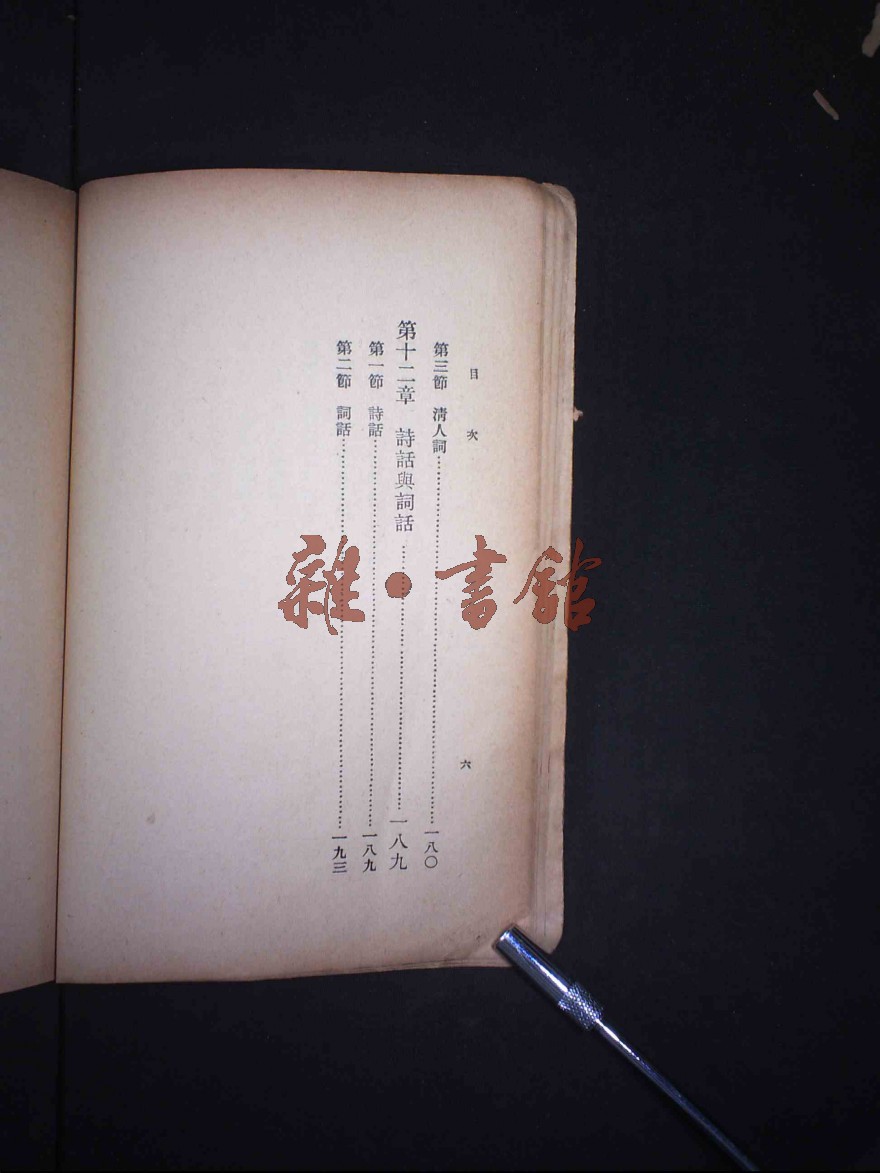 目次
六
第三節 清人詞……一八〇
第十二章 詩話與詞話……一八九
第一節 詩話……一八九
第二節 詞話……一九三
雜·書館